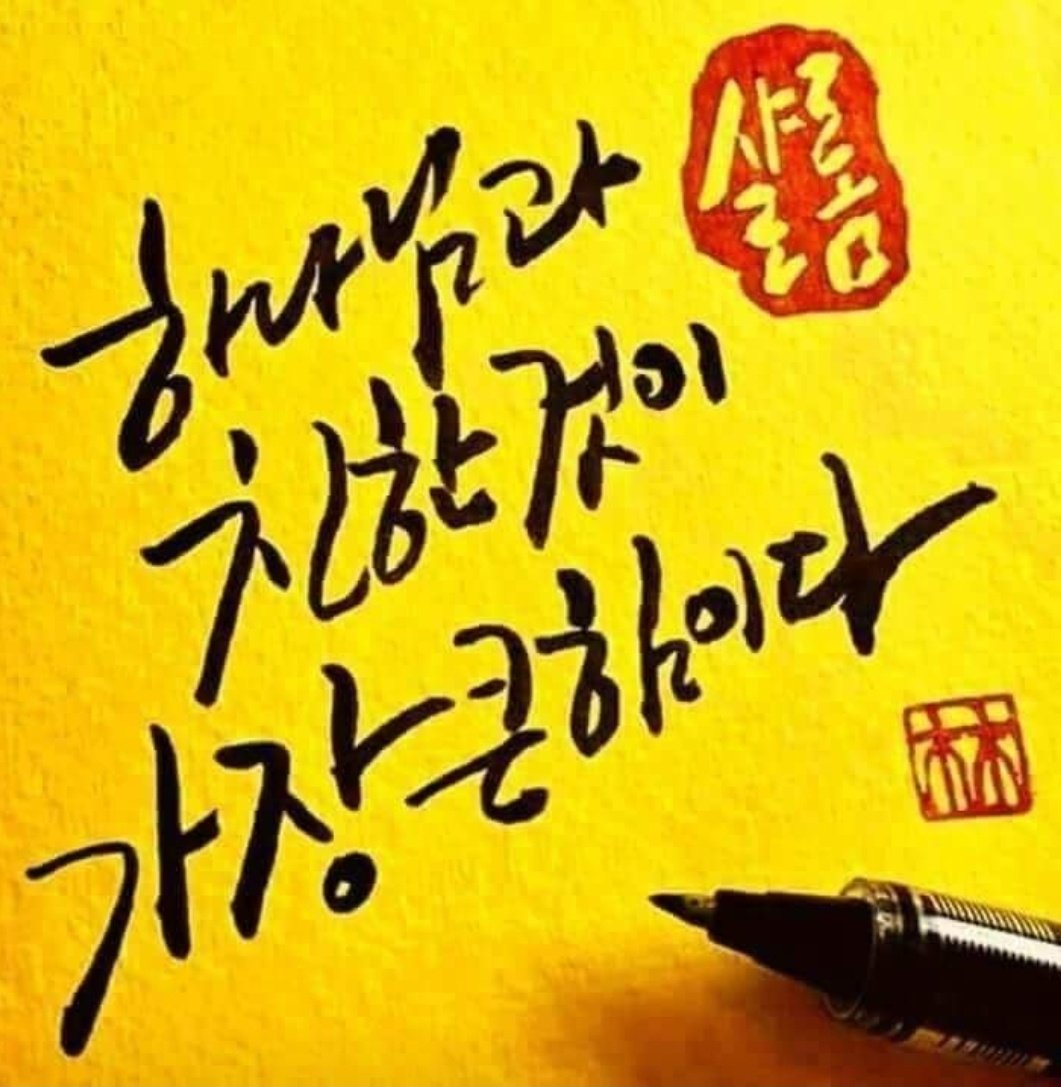 하나님과
친한 것이
가장 큰 힘이다
샬롬
林